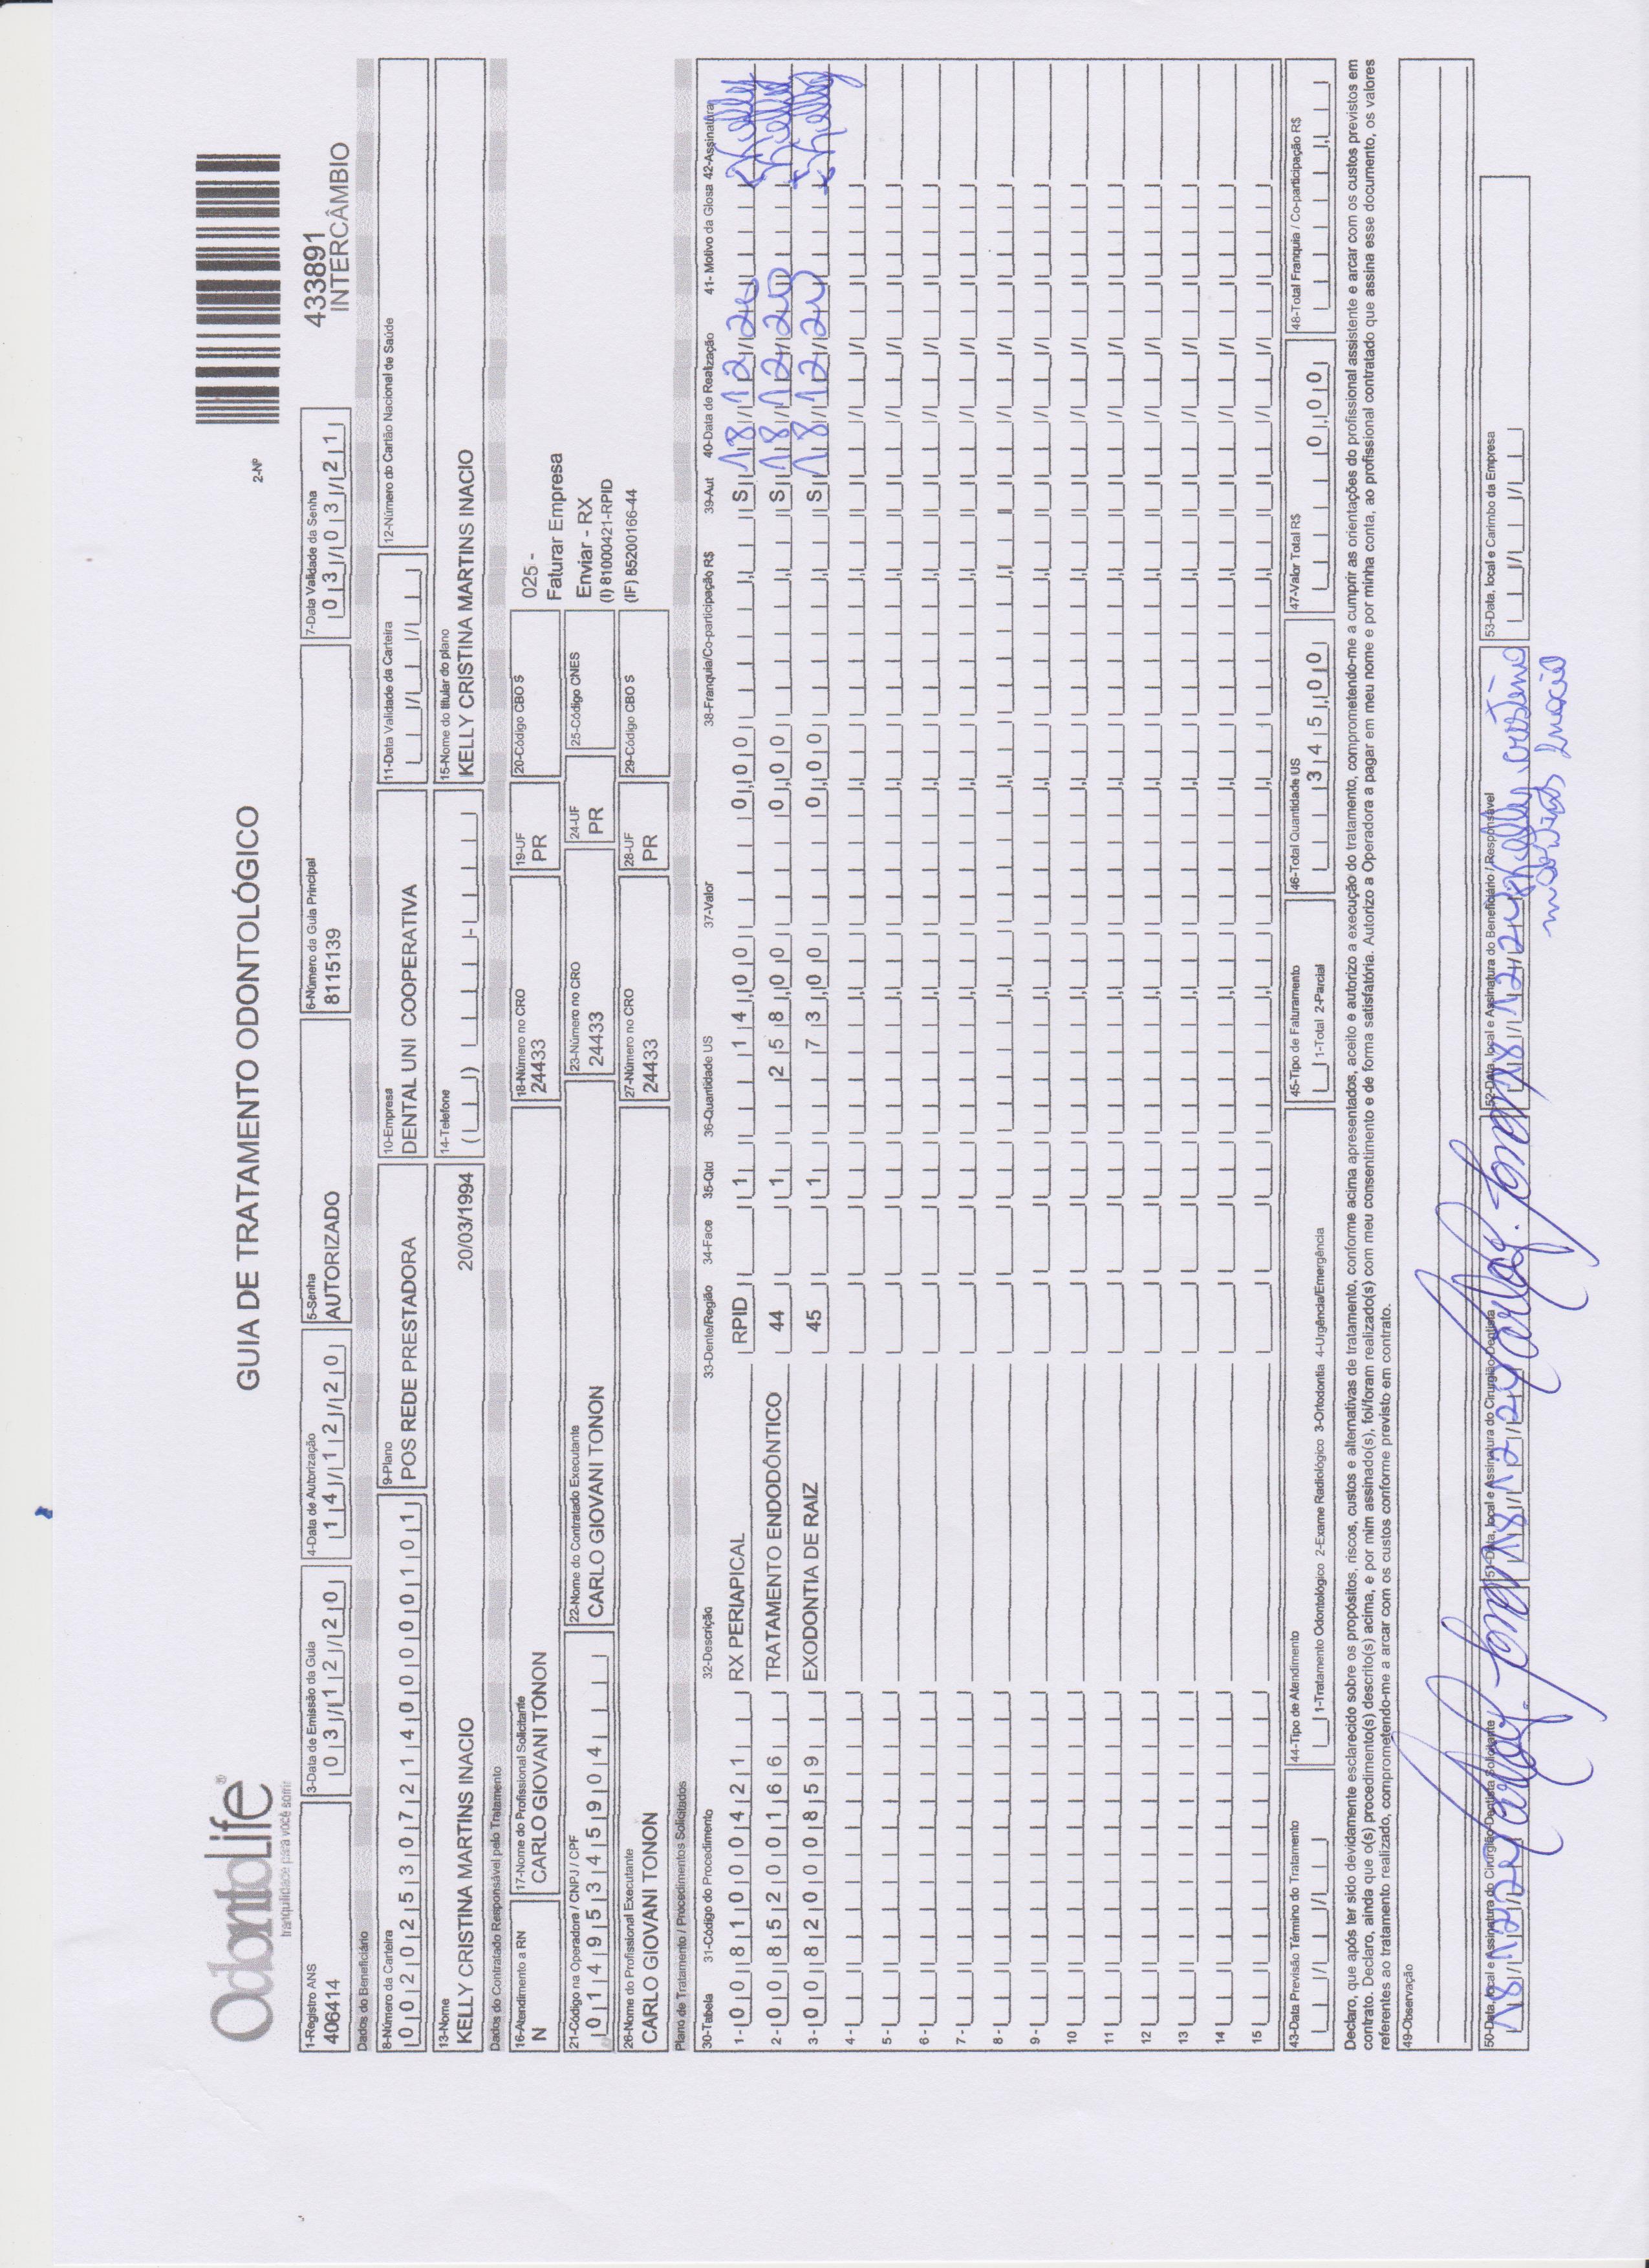 OdontoLife®
tranquilidade para você sorrir
GUIA DE TRATAMENTO ODONTOLÓGICO
2-Nº
433891
INTERCÂMBIO
1-Registro ANS
406414
3-Data de Emissão da Guia
03/12/20
4-Data de Autorização
14/12/20
5-Senha
AUTORIZADO
6-Número da Guia Principal
8115139
7-Data Validade da Senha
03/03/21
Dados do Beneficiário
8-Número da Carteira
00202530721400000101
9-Plano
POS REDE PRESTADORA
10-Empresa
DENTAL UNI COOPERATIVA
11-Data Validade da Carteira
12-Número do Cartão Nacional de Saúde
13-Nome
KELLY CRISTINA MARTINS INACIO
20/03/1994
14-Telefone
15-Nome do titular do plano
KELLY CRISTINA MARTINS INACIO
Dados do Contratado Responsável pelo Tratamento
16-Atendimento a RN
N
17-Nome do Profissional Solicitante
CARLO GIOVANI TONON
18-Número no CRO
24433
19-UF
PR
20-Código CBO S
025 -
Faturar Empresa
21-Código na Operadora / CNPJ / CPF
01495345904
22-Nome do Contratado Executante
CARLO GIOVANI TONON
23-Número no CRO
24433
24-UF
PR
25-Código CNES
Enviar - RX
(I) 81000421-RPID
26-Nome do Profissional Executante
CARLO GIOVANI TONON
27-Número no CRO
24433
28-UF
PR
29-Código CBO S
(IF) 85200166-44
Plano de Tratamento / Procedimentos Solicitados
30-Tabela 31-Código do Procedimento 32-Descrição 33-Dente/Região 34-Face 35-Qtd 36-Quantidade US 37-Valor 38-Franquia/Co-participação R$ 39-Aut 40-Data de Realização 41- Motivo da Glosa 42-Assinatura
1- 00 81000421 RX PERIAPICAL RPID 1 14,00 0,00 S 18/12/20 Khelly
2- 00 85200166 TRATAMENTO ENDODÔNTICO 44 1 258,00 0,00 S 18/12/20 Khelly
3- 00 82000859 EXODONTIA DE RAIZ 45 1 73,00 0,00 S 18/12/20 Khelly
4-
5-
6-
7-
8-
9-
10
11
12
13
14
15
43-Data Previsão Término do Tratamento
44-Tipo de Atendimento
1-Tratamento Odontológico 2-Exame Radiológico 3-Ortodontia 4-Urgência/Emergência
45-Tipo de Faturamento
1-Total 2-Parcial
46-Total Quantidade US
345,00
47-Valor Total R$
0,00
48-Total Franquia / Co-participação R$
Declaro, que após ter sido devidamente esclarecido sobre os propósitos, riscos, custos e alternativas de tratamento, conforme acima apresentados, aceito e autorizo a execução do tratamento, comprometendo-me a cumprir as orientações do profissional assistente e arcar com os custos previstos em
contrato. Declaro, ainda que o(s) procedimento(s) descrito(s) acima, e por mim assinado(s), foi/foram realizado(s) com meu consentimento e de forma satisfatória. Autorizo a Operadora a pagar em meu nome e por minha conta, ao profissional contratado que assina esse documento, os valores
referentes ao tratamento realizado, comprometendo-me a arcar com os custos conforme previsto em contrato.
49-Observação
50-Data, local e Assinatura do Cirurgião-Dentista Solicitante
18/12/20
51-Data, local e Assinatura do Cirurgião-Dentista
18/12/20
52-Data, local e Assinatura do Beneficiário / Responsável
18/12/20 Khelly cristina
martins Inacio
53-Data, local e Carimbo da Empresa